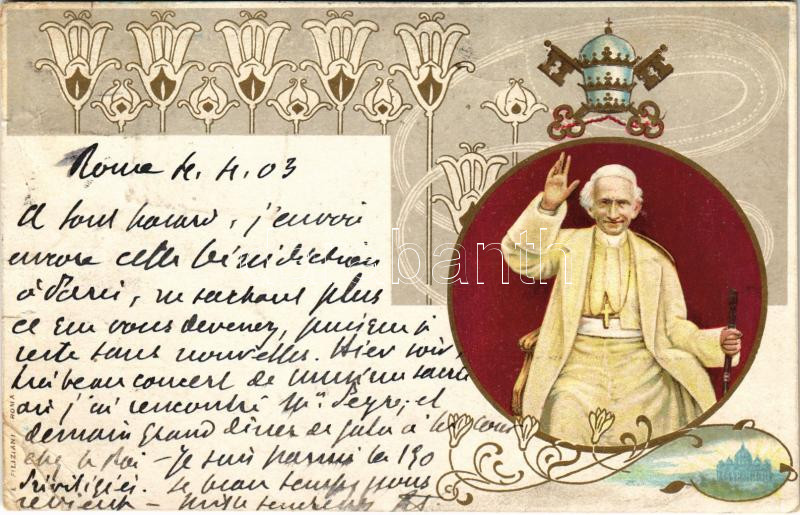 Rome 4. 4. 03
A tout hasard, j'envoie
encore cette bénédiction
à Paris, ne sachant plus
ce que vous devenez, puisque je
reste sans nouvelles. Hier soir,
très beau concert de musique sacrée
où j'ai rencontré Mr. et
demain grand dîner de gala à la cour
chez le Roi - Je suis parmi les 190
Privilégiés. Le beau temps nous
revient - Mille tendresses
FILIZIANI ROMA
darabanth